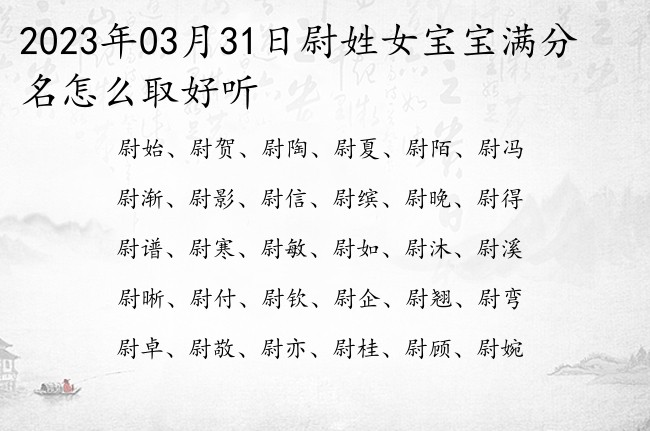 2023年03月31日尉姓女宝宝满分
名怎么取好听
尉始、尉贺、尉陶、尉夏、尉陌、尉冯
尉渐、尉影、尉信、尉缤、尉晚、尉得
尉谱、尉寒、尉敏、尉如、尉沐、尉溪
尉晰、尉付、尉钦、尉企、尉翘、尉弯
尉卓、尉敬、尉亦、尉桂、尉顾、尉婉